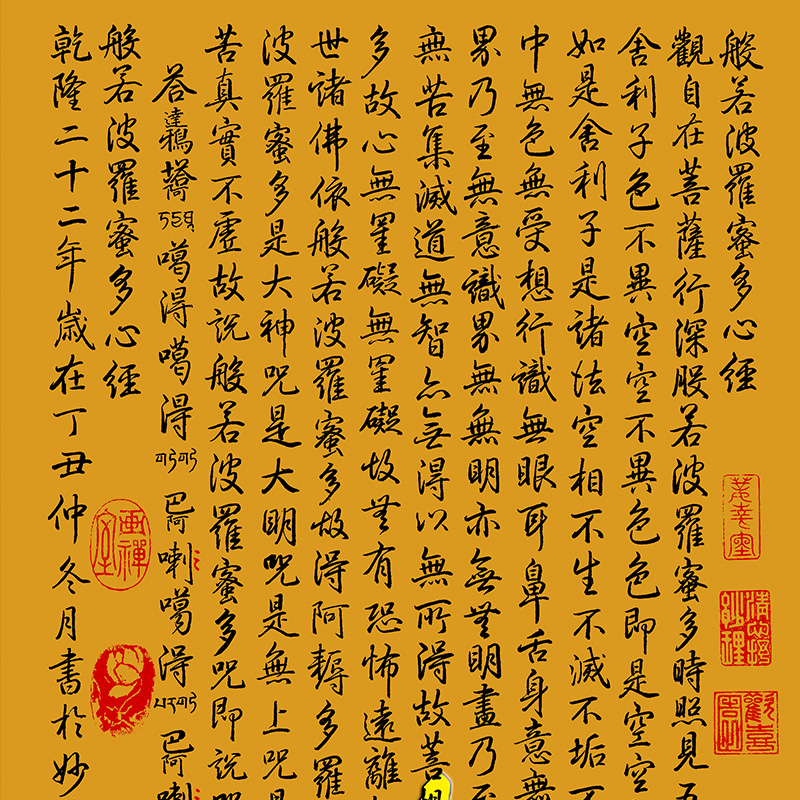 般若波羅蜜多心經
觀自在菩薩行深般若波羅蜜多時照見五
舍利子色不異空空不異色色即是空空
如是舍利子是諸法空相不生不滅不垢不
中無色無受想行識無眼耳鼻舌身意無
界乃至無意識界無無明亦無無明盡乃至
無苦集滅道無智亦無得以無所得故菩
多故心無罣礙無罣礙故無有恐怖遠離
世諸佛依般若波羅蜜多故得阿耨多羅
波羅蜜多是大神咒是大明咒是無上咒是
苦真實不虛故說般若波羅蜜多咒即說
答達鴉 噶得噶得 巴阿喇噶得 巴阿喇
般若波羅蜜多心經
乾隆二十二年歲在丁丑仲冬月書於妙
畫禪室